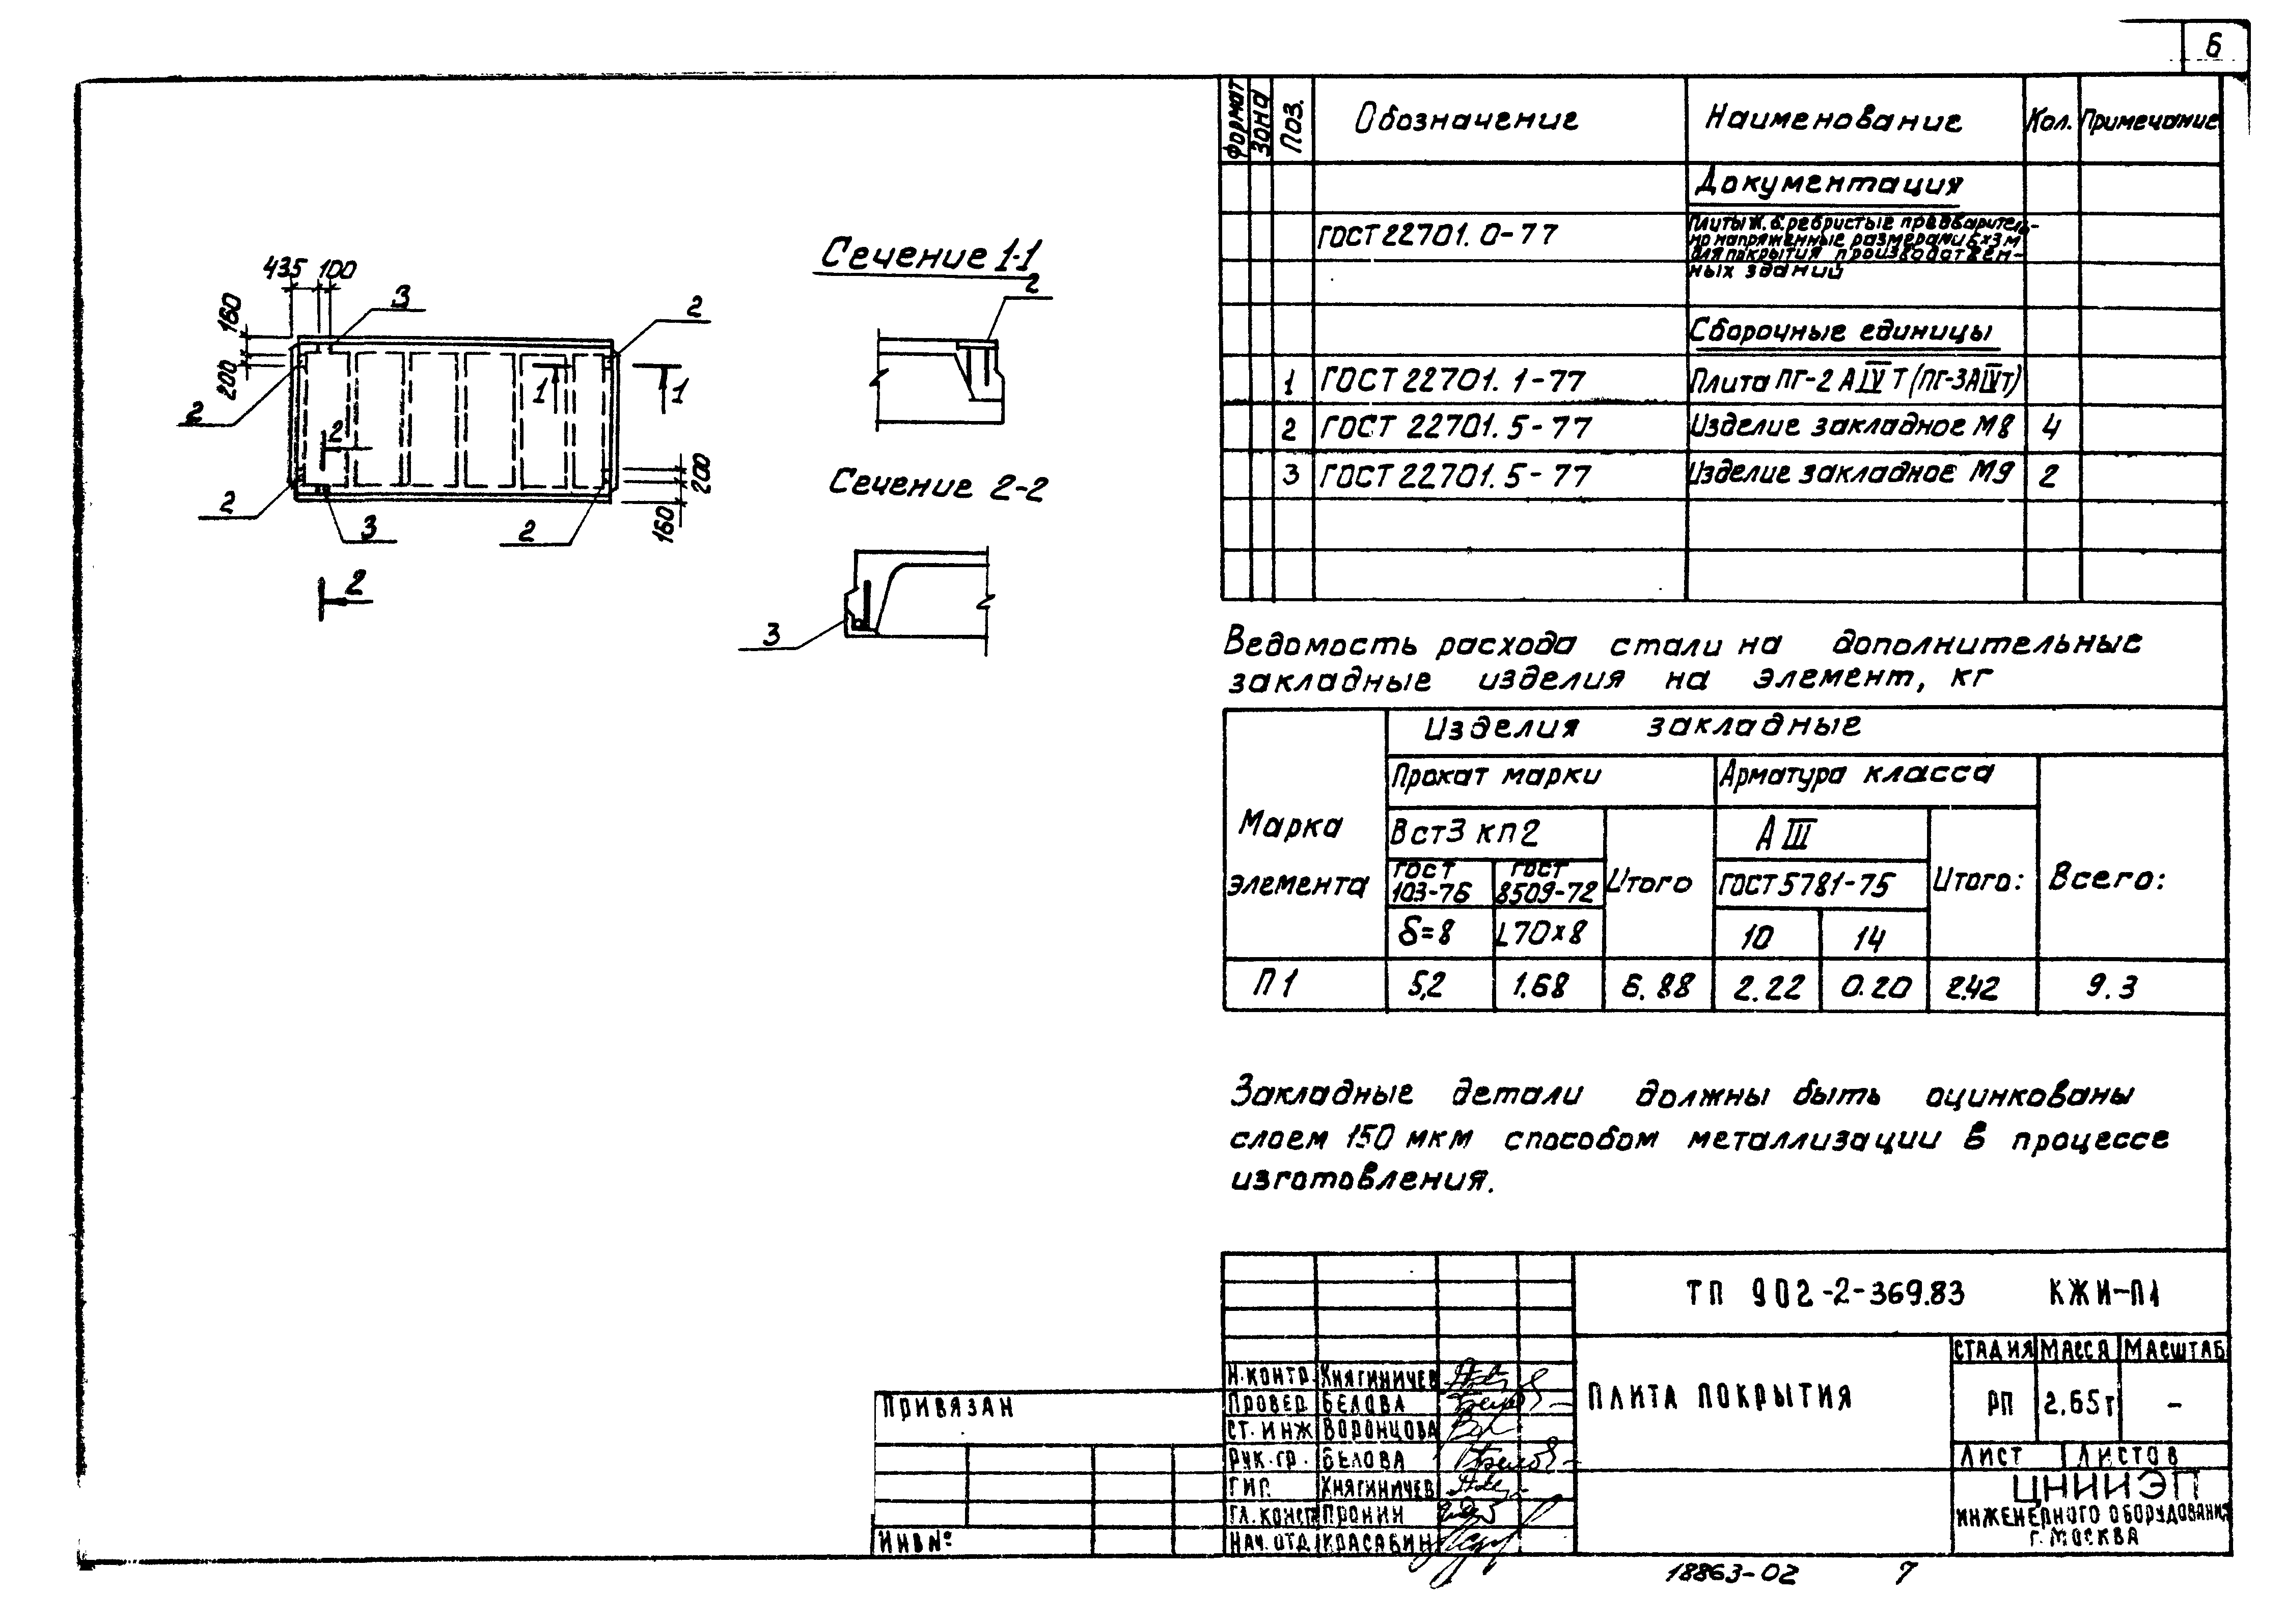 6
Формат
Зона
Поз.
Обозначение
Наименование
Кол.
Примечание
Документация
ГОСТ 22701. 0-77
Плиты ж.б. ребристые предваритель-
но напряженные размерами 6х3м
для покрытия производствен-
ных зданий
Сборочные единицы
1 ГОСТ 22701. 1-77 Плита ПГ-2 АIV Т (ПГ-3АIVТ)
2 ГОСТ 22701. 5-77 Изделие закладное М8 4
3 ГОСТ 22701. 5-77 Изделие закладное М9 2
435 100
160
200
3
2
2
1 1
2
2
3
2
200
160
2
Сечение 1-1
2
Сечение 2-2
3
Ведомость расхода стали на дополнительные
закладные изделия на элемент, кг
Марка
элемента
Изделия закладные
Прокат марки
Арматура класса
Всего:
Вст3 кп2
Итого
А III
Итого:
ГОСТ
103-76
ГОСТ
8509-72
ГОСТ 5781-75
δ=8
L70×8
10
14
П1 5,2 1.68 6.88 2.22 0.20 2.42 9.3
Закладные детали должны быть оцинкованы
слоем 150 мкм способом металлизации в процессе
изготовления.
ТП 902-2-369.83 КЖИ-П1
Н.КОНТР. КНЯГИНИЧЕВ
ПРОВЕР. БЕЛОВА
СТ. ИНЖ ВОРОНЦОВА
РУК. ГР. БЕЛОВА
ГИП. КНЯГИНИЧЕВ
ГЛ. КОНСТ ПРОНИН
НАЧ. ОТД. КРАСАВИН
ПЛИТА ПОКРЫТИЯ
СТАДИЯ МАССА МАСШТАБ
РП 2.65т -
ЛИСТ ЛИСТОВ
ЦНИИЭП
ИНЖЕНЕРНОГО ОБОРУДОВАНИЯ
Г. МОСКВА
ПРИВЯЗАН
ИНВ №
18863-02 7